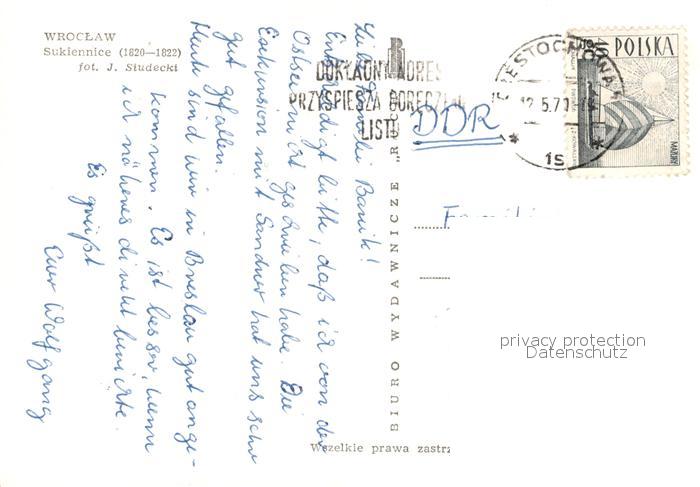 WROCŁAW
Sukiennice (1820—1822)
fot. J. Studecki
DOKŁADNY ADRES
PRZYSPIESZA DORĘCZENIE
LISTU
CZĘSTOCHOWA
12.5.71
POLSKA
MAZURY
DDR
BIURO WYDAWNICZE "R
Wszelkie prawa zastrz
Liebe Familie Banik!
Entschuldigt bitte, daß ich von der
Ostsee nicht geschrieben habe. Die
Exkursion mit Sandner hat uns sehr
gut gefallen.
Heute sind wir in Breslau gut ange-
kommen. Es ist besser, wenn
ich näheres direkt berichte.
Es grüßt
Euer Wolfgang
privacy protection
Datenschutz